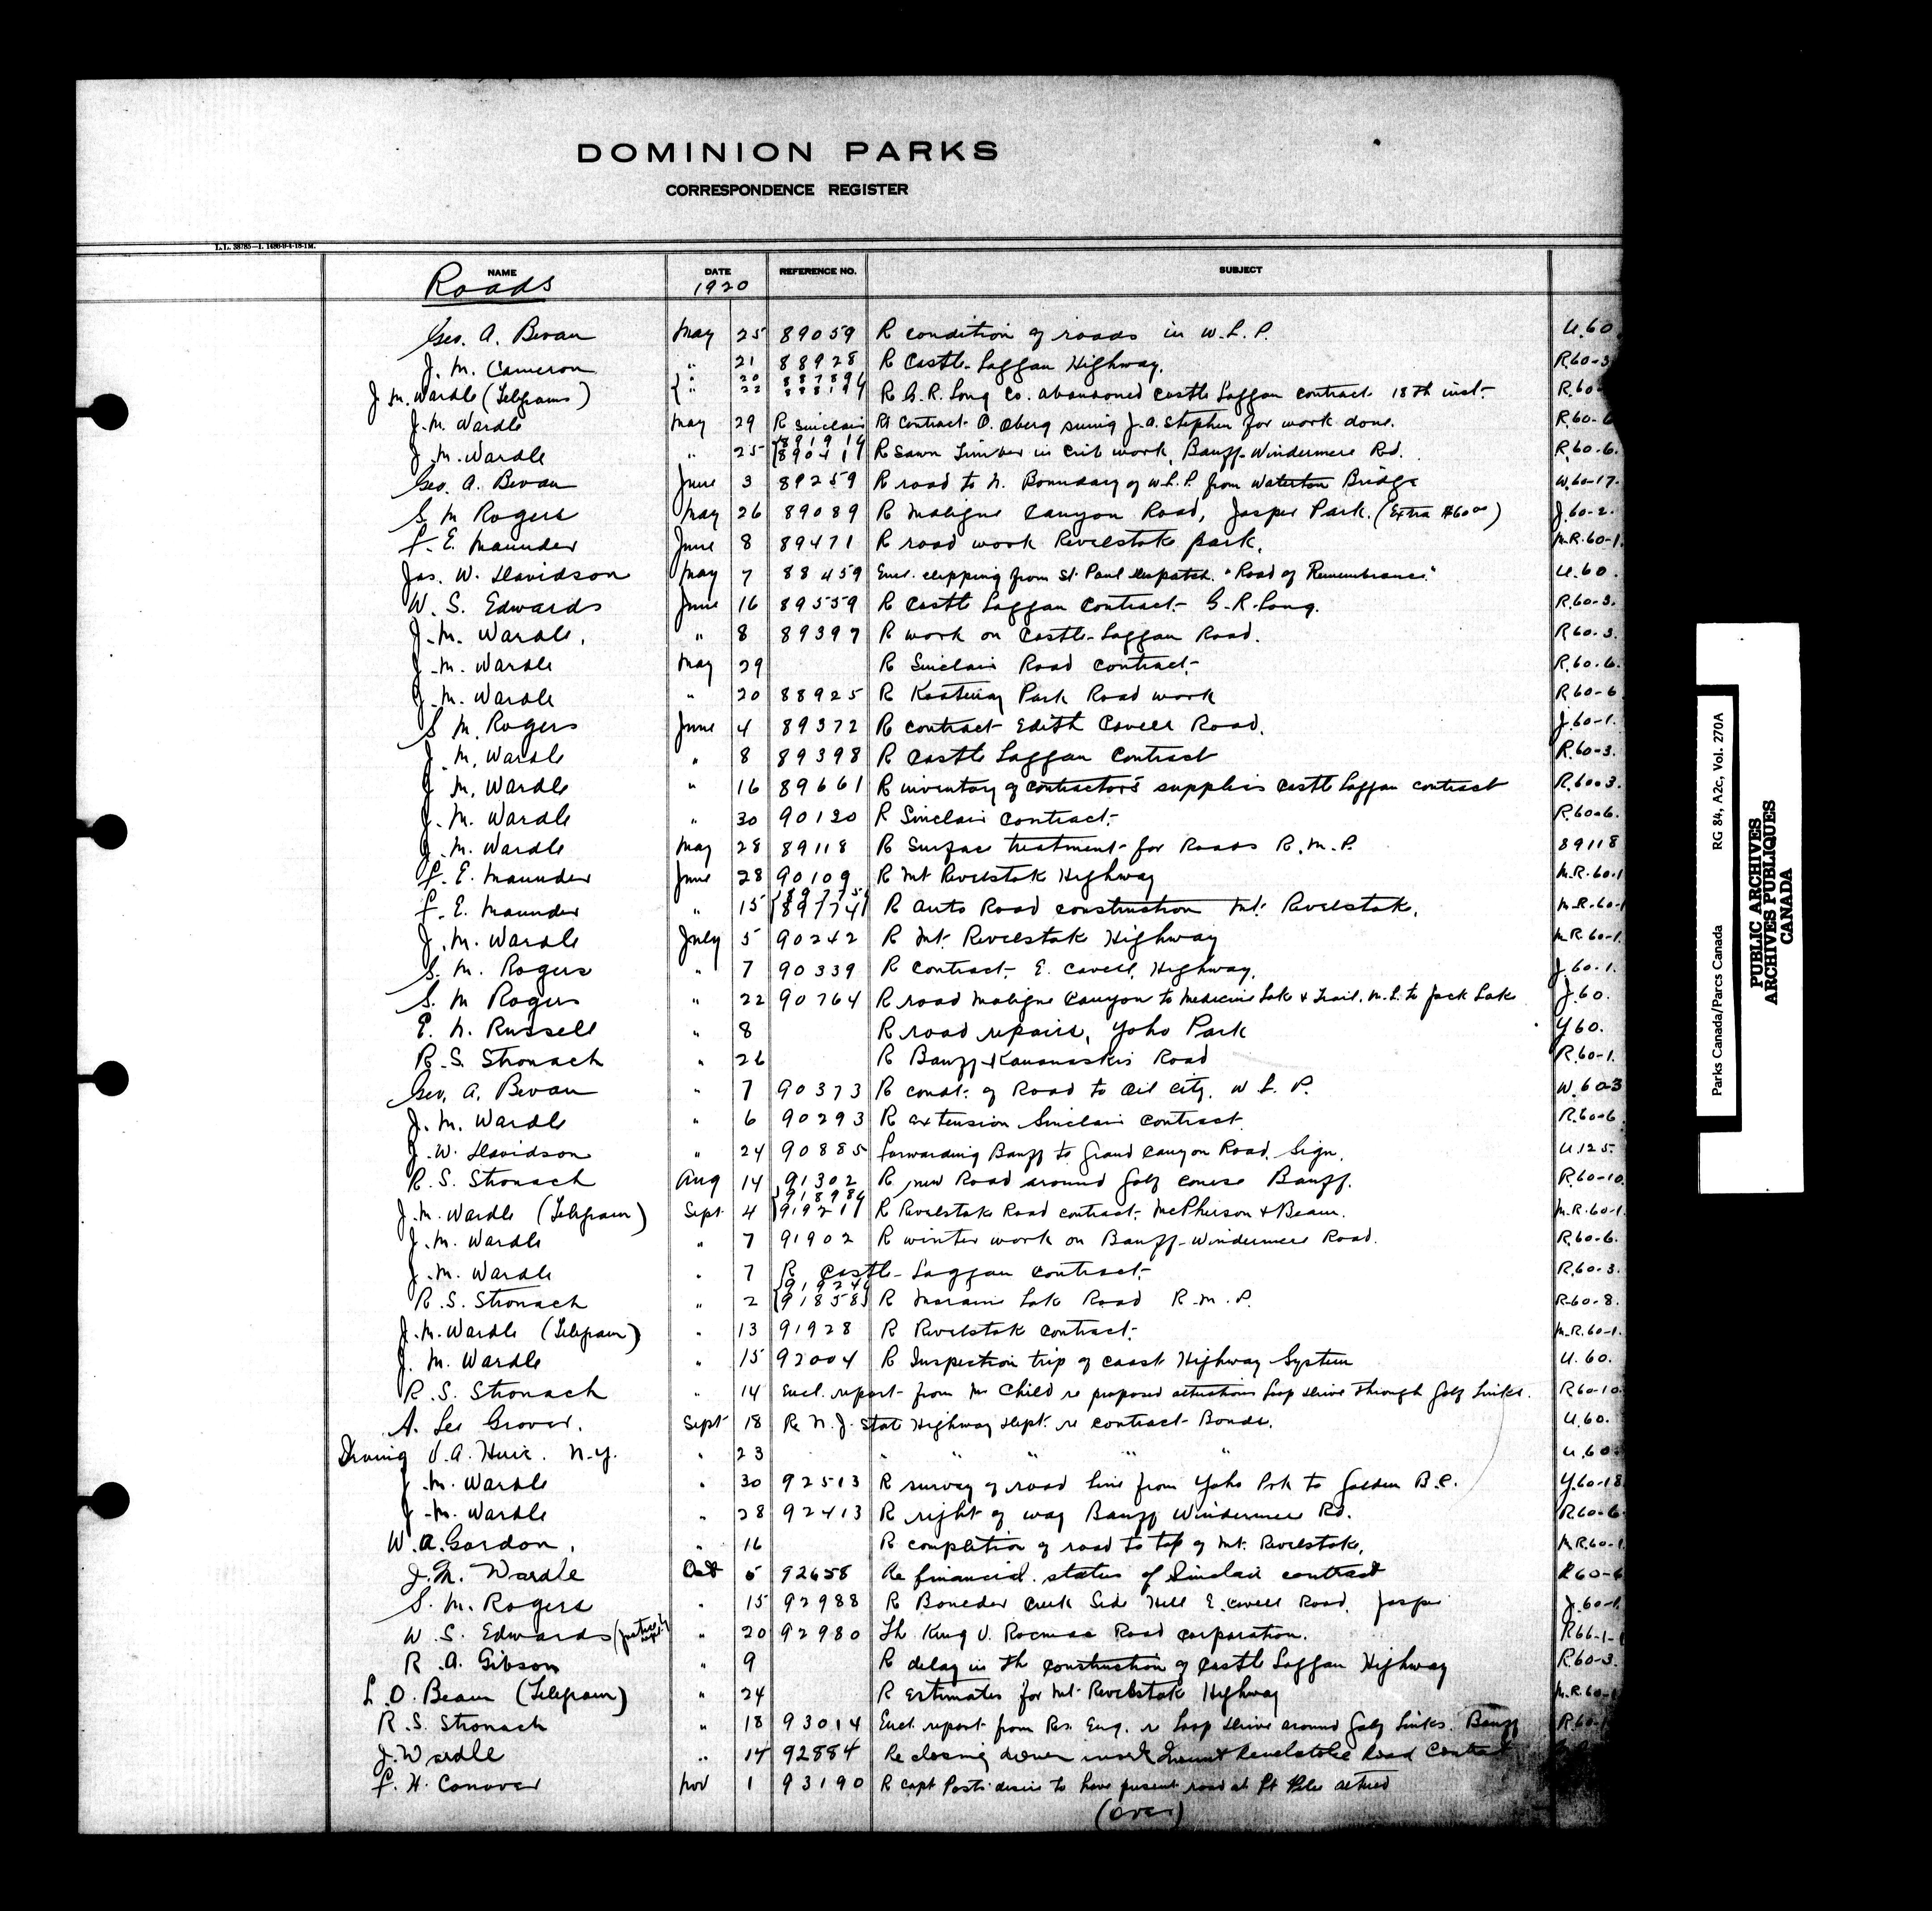 DOMINION PARKS
CORRESPONDENCE REGISTER
L.L. 38785—I. 1486-9-4-18-1M.
NAME DATE REFERENCE NO. SUBJECT
Roads 1920
Geo. A. Bevan May 25 89059 R condition of roads in W.L.P. U.60
J. M. Cameron " 21 88928 R Castle-Laggan Highway. R.60-3
J.M. Wardle (Telegrams) " 22 R G.R. Long Co. abandoned Castle Laggan contract 18th inst. R.60
J.M. Wardle May 29 R Sinclair Rd contract O. Oberg suing J.A. Stephen for work done. R.60-6
J.M. Wardle " 25 R Sawn Timber in Crib work, Banff-Windermere Rd. R.60-6.
Geo. A. Bevan June 3 89259 R road to N. Boundary of W.L.P. from Waterton Bridge W.60-17.
S. M Rogers May 26 89089 R Maligne Canyon Road, Jasper Park. (Extra $60.00) J.60-2.
F. E. Maunder June 8 89471 R road work Revelstoke park. M.R.60-1.
Jas. W. Davidson May 7 88459 Encl. clipping from St. Paul Despatch. "Road of Remembrance." U.60.
W. S. Edwards June 16 89559 R Castle Laggan Contract - G.R. Long. R.60-3.
J.M. Wardle. " 8 89397 R work on Castle-Laggan Road. R.60-3.
J.M. Wardle May 29 R Sinclair Road contract- R.60-6.
J.M. Wardle " 20 88925 R Kootenay Park Road work R.60-6
S M. Rogers June 4 89372 R contract Edith Cavell Road. J.60-1.
J.M. Wardle " 8 89398 R Castle Laggan Contract R.60-3.
J M. Wardle " 16 89661 R inventory of contractor's supplies Castle Laggan contract R.60-3.
J.M. Wardle " 30 90120 R Sinclair contract- R.60-6.
J.M. Wardle May 28 89118 R Surface treatment for Roads R.M.P. 89118
F. E. Maunder June 28 90109 R Mt Revelstoke Highway M.R.60-1
F. E. Maunder " 15 {89775 89774} R Auto Road construction Mt. Revelstoke. M.R.60-1
J.M. Wardle July 5 90242 R Mt. Revelstoke Highway M.R.60-1.
S. M. Rogers " 7 90339 R contract - E. Cavell Highway. J.60-1.
S. M Rogers " 22 90764 R road Maligne Canyon to Medicine Lake & Trail, M.L. to Jack Lake J.60.
E. N. Russell " 8 R road repairs, Yoho Park Y60.
R.S. Stronach " 26 R Banff-Kananaskis Road R.60-1.
Geo. A. Bevan " 7 90373 R condt. of Road to Oil City. W L.P. W.60-3
J.M. Wardle " 6 90293 R extension Sinclair contract R.60-6
J. W. Davidson " 24 90885 Forwarding Banff to Grand Canyon Road Sign. U.125.
R.S. Stronach Aug 14 91302 R new Road around Golf course Banff. R.60-10.
J.M. Wardle (Telegram) Sept 4 {91898 91921} R Revelstoke Road contract. McPherson & Beam. M.R.60-1.
J.M. Wardle " 7 91902 R winter work on Banff-Windermere Road. R.60-6.
J.M. Wardle " 7 R Castle-Laggan contract- R.60-3.
R.S. Stronach " 2 {91924 91858} R Moraine Lake Road R.M.P. R.60-8.
J.M. Wardle (Telegram) " 13 91928 R Revelstoke contract- M.R.60-1.
J.M. Wardle " 15 92004 R Inspection trip of Coast Highway System U.60.
R.S. Stronach " 14 Encl. report from Mr Child re proposed alterations Loop Drive through Golf Links. R60-10.
A. Lee Grover. Sept 18 R N.J. State Highway Dept. re contract Bonds. U.60.
Irving V.A. Huie. N.Y. " 23 " " " " U.60.
J.M. Wardle " 30 92513 R survey of road line from Yoho Prk to Golden B.C. Y.60-18
J.M. Wardle " 28 92413 R right of way Banff Windermere Rd. R60-6.
W. A. Gordon. " 16 R completion of road to top of Mt. Revelstoke. M.R.60-1
J.M. Wardle Oct 5 92658 Re financial status of Sinclair contract R60-6
S. M. Rogers " 15 92988 R Boulder Creek Side Hill E. Cavell Road. Jasper J.60-1.
W. S. Edwards (Justice Dept) " 20 92980 The King V. Rocmac Road corporation. R66-1-
R.A. Gibson " 9 R delay in the construction of Castle Laggan Highway R.60-3.
L. O. Beam (Telegram) " 24 R estimates for Mt. Revelstoke Highway M.R.60-1
R.S. Stronach " 18 93014 Encl. report from Res. Eng. re Loop Drive around Golf Links. Banff R.60-1
J. Wardle " 14 92884 Re closing down work Mount Revelstoke Road Contract
F. H. Conover Nov 1 93190 R Capt Posts desire to have present road at Pt Pelee altered
(over)
Parks Canada/Parcs Canada RG 84, A2c, Vol. 270A
PUBLIC ARCHIVES
ARCHIVES PUBLIQUES
CANADA